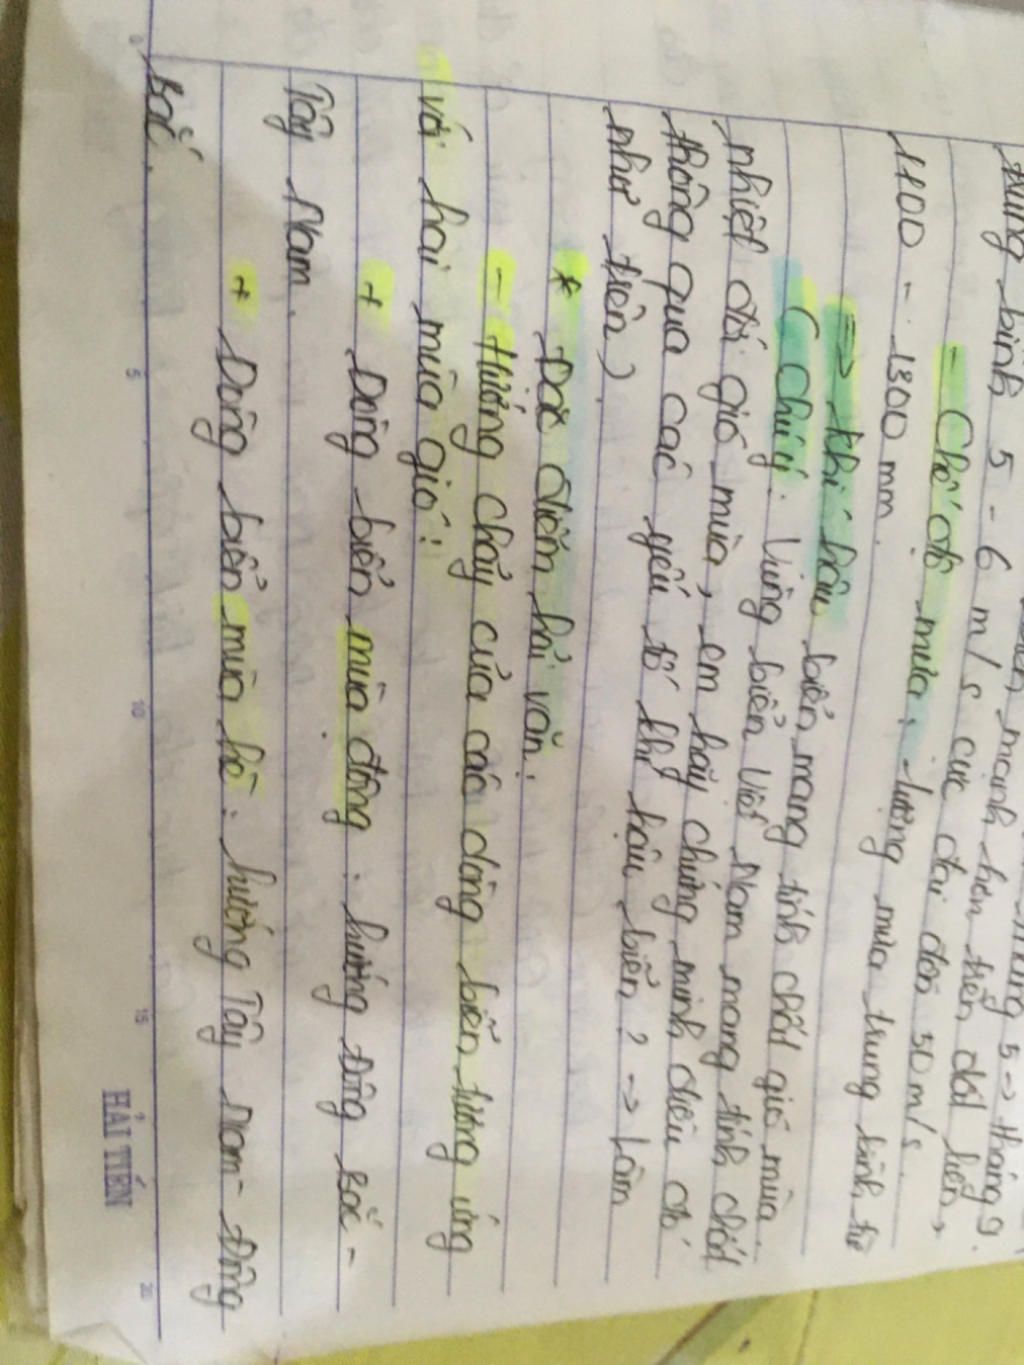 mạnh hơn trên đất liền,
trung bình 5 - 6 m/s cực đại đến 50 m/s.
- Chế độ mưa: lượng mưa trung bình từ
1100 - 1300 mm.
=> khí hậu biển mang tính chất gió mùa.
(Chú ý: Vùng biển Việt Nam mang tính chất
nhiệt đới gió mùa, em hãy chứng minh điều đó
thông qua các yếu tố khí hậu biển? -> Làm
như trên).
* Đặc điểm hải văn:
- Hướng chảy của các dòng biển tương ứng
với hai mùa gió:
+ Dòng biển mùa đông: hướng Đông Bắc -
Tây Nam.
+ Dòng biển mùa hè: hướng Tây Nam - Đông
Bắc.
0 5 10 15 20
HẢI TIẾN